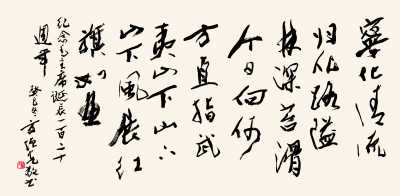 寧化清流
归化路隘
林深苔滑
今日向何
方直指武
夷山下山下
山下風展红
旗如畫
纪念毛主席诞辰一百二十
週年
癸巳冬
敬书